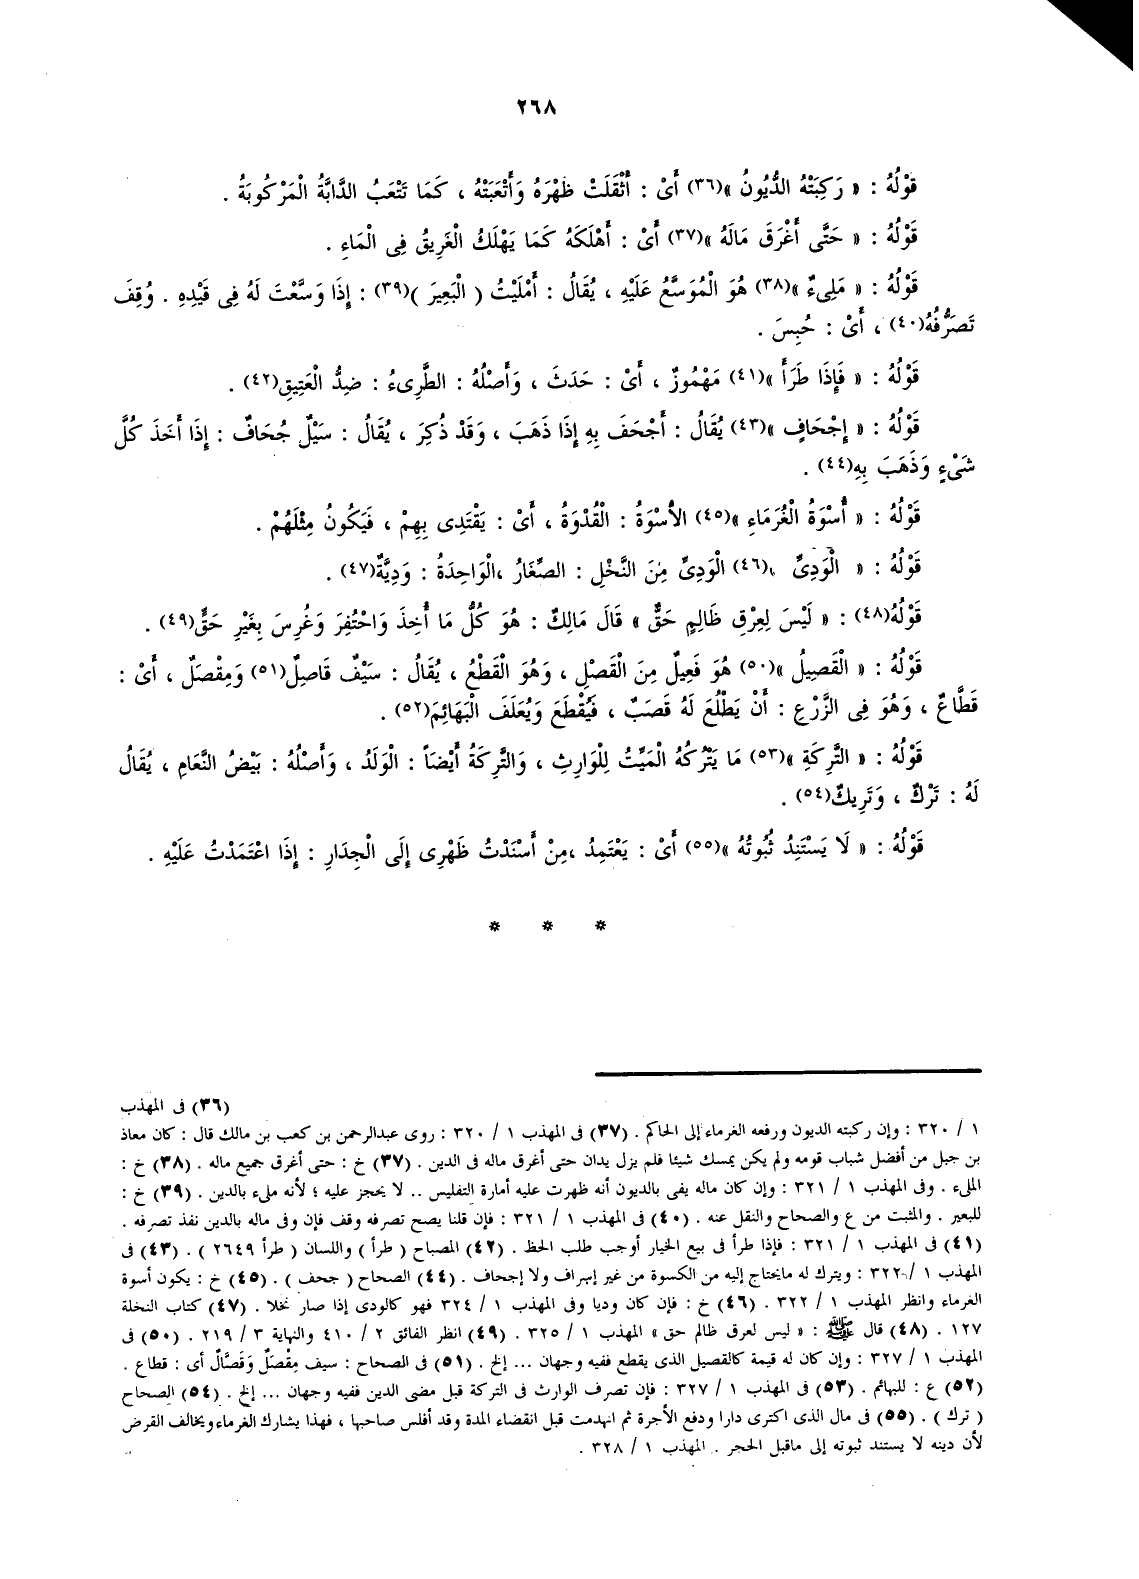 ٢٦٨
قَوْلُهُ : « رَكِبَتْهُ الدُّيُونُ »(٣٦) أَىْ : أَثْقَلَتْ ظَهْرَهُ وَأَتْعَبَتْهُ ، كَمَا تَتْعَبُ الدَّابَّةُ الْمَرْكُوبَةُ .
قَوْلُهُ : « حَتَّى أَغْرَقَ مَالَهُ »(٣٧) أَىْ : أَهْلَكَهُ كَمَا يَهْلَكُ الْغَرِيقُ فِى الْمَاءِ .
قَوْلُهُ : « مَلِىءٌ »(٣٨) هُوَ الْمُوَسَّعُ عَلَيْهِ ، يُقَالُ : أَمْلَيْتُ ( الْبَعِيرَ )(٣٩) : إِذَا وَسَّعْتَ لَهُ فِى قَيْدِهِ . وُقِفَ
تَصَرُّفُهُ(٤٠) ، أَىْ : حُبِسَ .
قَوْلُهُ : « فَإِذَا طَرَأَ »(٤١) مَهْمُوزٌ ، أَىْ : حَدَثَ ، وَأَصْلُهُ : الطَّرِىءُ : ضِدُّ الْعَتِيقِ(٤٢) .
قَوْلُهُ : « إِجْحَافٍ »(٤٣) يُقَالُ : أَجْحَفَ بِهِ إِذَا ذَهَبَ ، وَقَدْ ذُكِرَ ، يُقَالُ : سَيْلٌ جُحَافٌ : إِذَا أَخَذَ كُلَّ
شَىْءٍ وَذَهَبَ بِهِ(٤٤) .
قَوْلُهُ : « أُسْوَةُ الْغُرَمَاءِ »(٤٥) الأُسْوَةُ : الْقُدْوَةُ ، أَىْ : يَقْتَدِى بِهِمْ ، فَيَكُونُ مِثْلَهُمْ .
قَوْلُهُ : « الْوَدِىِّ »(٤٦) الْوَدِىُّ مِنَ النَّخْلِ : الصِّغَارُ ،الْوَاحِدَةُ : وَدِيَّةٌ(٤٧) .
قَوْلُهُ(٤٨) : « لَيْسَ لِعِرْقِ ظَالِمٍ حَقٌّ » قَالَ مَالِكٌ : هُوَ كُلُّ مَا أُخِذَ وَاحْتُفِرَ وَغُرِسَ بِغَيْرِ حَقٍّ(٤٩) .
قَوْلُهُ : « الْقَصِيلُ »(٥٠) هُوَ فَعِيلٌ مِنَ الْقَصْلِ ، وَهُوَ الْقَطْعُ ، يُقَالُ : سَيْفٌ قَاصِلٌ(٥١) وَمِقْصَلٌ ، أَىْ :
قَطَّاعٌ ، وَهُوَ فِى الزَّرْعِ : أَنْ يَطْلُعَ لَهُ قَصَبٌ ، فَيُقْطَعَ وَيُعْلَفَ الْبَهَائِمَ(٥٢) .
قَوْلُهُ : « التَّرِكَةِ »(٥٣) مَا يَتْرُكُهُ الْمَيِّتُ لِلْوَارِثِ ، وَالتَّرِكَةُ أَيْضَاً : الْوَلَدُ ، وَأَصْلُهُ : بَيْضُ النَّعَامِ ، يُقَالُ
لَهُ : تَرْكٌ ، وَتَرِيكٌ(٥٤) .
قَوْلُهُ : « لَا يَسْتَنِدُ ثُبُوتُهُ »(٥٥) أَىْ : يَعْتَمِدُ ،مِنْ أَسْنَدْتُ ظَهْرِى إِلَى الْجِدَارِ : إِذَا اعْتَمَدْتُ عَلَيْهِ .
* * *
(٣٦) فى المهذب
١ / ٣٢٠ : وإن ركبته الديون ورفعه الغرماء إلى الحاكم . (٣٧) فى المهذب ١ / ٣٢٠ : روى عبدالرحمن بن كعب بن مالك قال : كان معاذ
بن جبل من أفضل شباب قومه ولم يكن يمسك شيئا فلم يزل يدان حتى أغرق ماله فى الدين . (٣٧) خ : حتى أغرق جميع ماله . (٣٨) خ :
الملىء . وفى المهذب ١ / ٣٢١ : وإن كان ماله يفى بالديون أنه ظهرت عليه أمارة التفليس .. لا يحجز عليه ؛ لأنه ملىء بالدين . (٣٩) خ :
للبعير . والمثبت من ع والصحاح والنقل عنه . (٤٠) فى المهذب ١ / ٣٢١ : فإن قلنا يصح تصرفه وقف فإن وفى ماله بالدين نفذ تصرفه .
(٤١) فى المهذب ١ / ٣٢١ : فإذا طرأ فى بيع الخيار أوجب طلب الحظ . (٤٢) المصباح ( طرأ ) واللسان ( طرأ ٢٦٤٩ ) . (٤٣) فى
المهذب ١ / ٣٢٢ : ويترك له مايحتاج إليه من الكسوة من غير إسراف ولا إجحاف . (٤٤) الصحاح ( جحف ) . (٤٥) خ : يكون أسوة
الغرماء وانظر المهذب ١ / ٣٢٢ . (٤٦) خ : فإن كان وديا وفى المهذب ١ / ٣٢٤ فهو كالودى إذا صار نخلا . (٤٧) كتاب النخلة
١٢٧ . (٤٨) قال ﷺ : « ليس لعرق ظالم حق » المهذب ١ / ٣٢٥ . (٤٩) انظر الفائق ٢ / ٤١٠ والنهاية ٣ / ٢١٩ . (٥٠) فى
المهذب ١ / ٣٢٧ : وإن كان له قيمة كالقصيل الذى يقطع ففيه وجهان ... إلخ . (٥١) فى الصحاح : سيف مِقْصَلٌ وَقَصَّالٌ أى : قطاع .
(٥٢) ع : للبهائم . (٥٣) فى المهذب ١ / ٣٢٧ : فإن تصرف الوارث فى التركة قبل مضى الدين ففيه وجهان ... إلخ . (٥٤) الصحاح
( ترك ) . (٥٥) فى مال الذى اكترى دارا ودفع الأجرة ثم انهدمت قبل انقضاء المدة وقد أفلس صاحبها ، فهذا يشارك الغرماء ويخالف القرض
لأن دينه لا يستند ثبوته إلى ماقبل الحجر . المهذب ١ / ٣٢٨ .